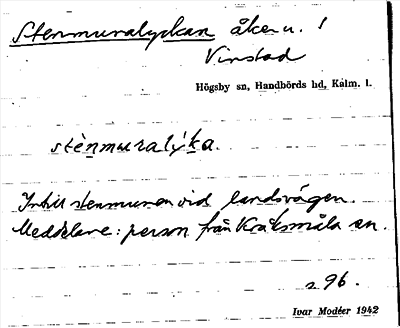 Stenmuralyckan åker u. 1
Vinstad
Högsby sn, Handbörds hd, Kalm. l.
stènmuralýka.
Intill stenmuren vid landsvägen.
Meddelare: person från Kråksmåla sn.
s. 96.
Ivar Modéer 1942